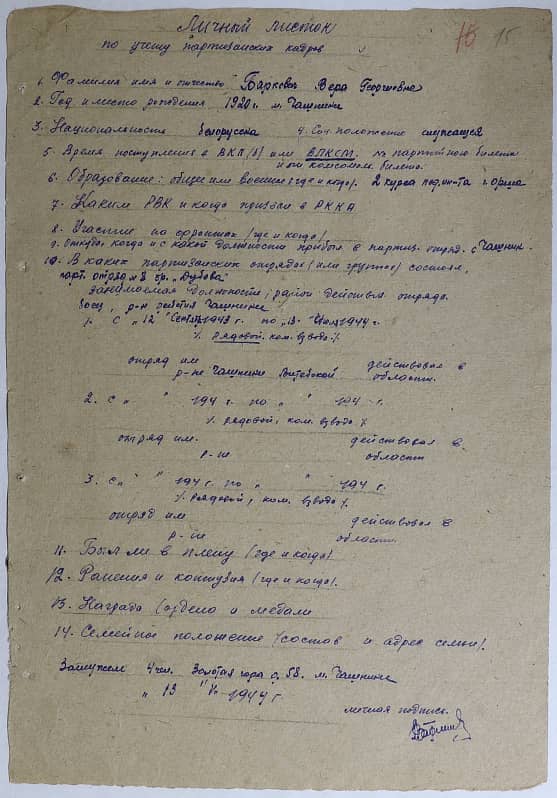 15 15
Личный листок
по учету партизанских кадров
1. Фамилия имя и отчество Баркевич Вера Георгиевна
2. Год и место рождения 1920 г. м. Чашники
3. Национальность белорусска 4. Соц. положение служащая
5. Время поступления в ВКП(б) или ВЛКСМ, № партийного билета
или комсомол. билета.
6. Образование: общее или военное (где и когда). 2 курса пед. ин-та г. Орша
7. Каким РВК и когда призван в РККА
8. Участие на фронтах (где и когда)
9. Откуда когда и с какой должности прибыл в партиз. отряд. с Чашник
10. В каких партизанских отрядах (или группах) состоял,
парт. отряд № 8 бр. „Дубова"
занимаемая должность, район действия отряда.
боец, р-н действия Чашники
1. с "12" Сент. 1943 г. по "13" 1944 г.
% рядовой, ком. взвода %
отряд им действовал в
р-не Чашники Витебской области.
2. с „ " 194 г. по „ " 194 г.
% рядовой, ком. взвода %
отряд им. действовал в
р-не области
3. с „ " 194 г. по „ " 194 г.
% рядовой, ком. взвода %.
отряд им действовал в
р-не области.
11. Был ли в плену (где и когда)
12. Ранения и контузия (где и когда).
13. Награда (ордена и медали
14. Семейное положение (состав и адрес семьи).
Замужем 4 чел. Золотая гора д. 58. м. Чашники
„ 13 " 1944 г.
личная подпись.